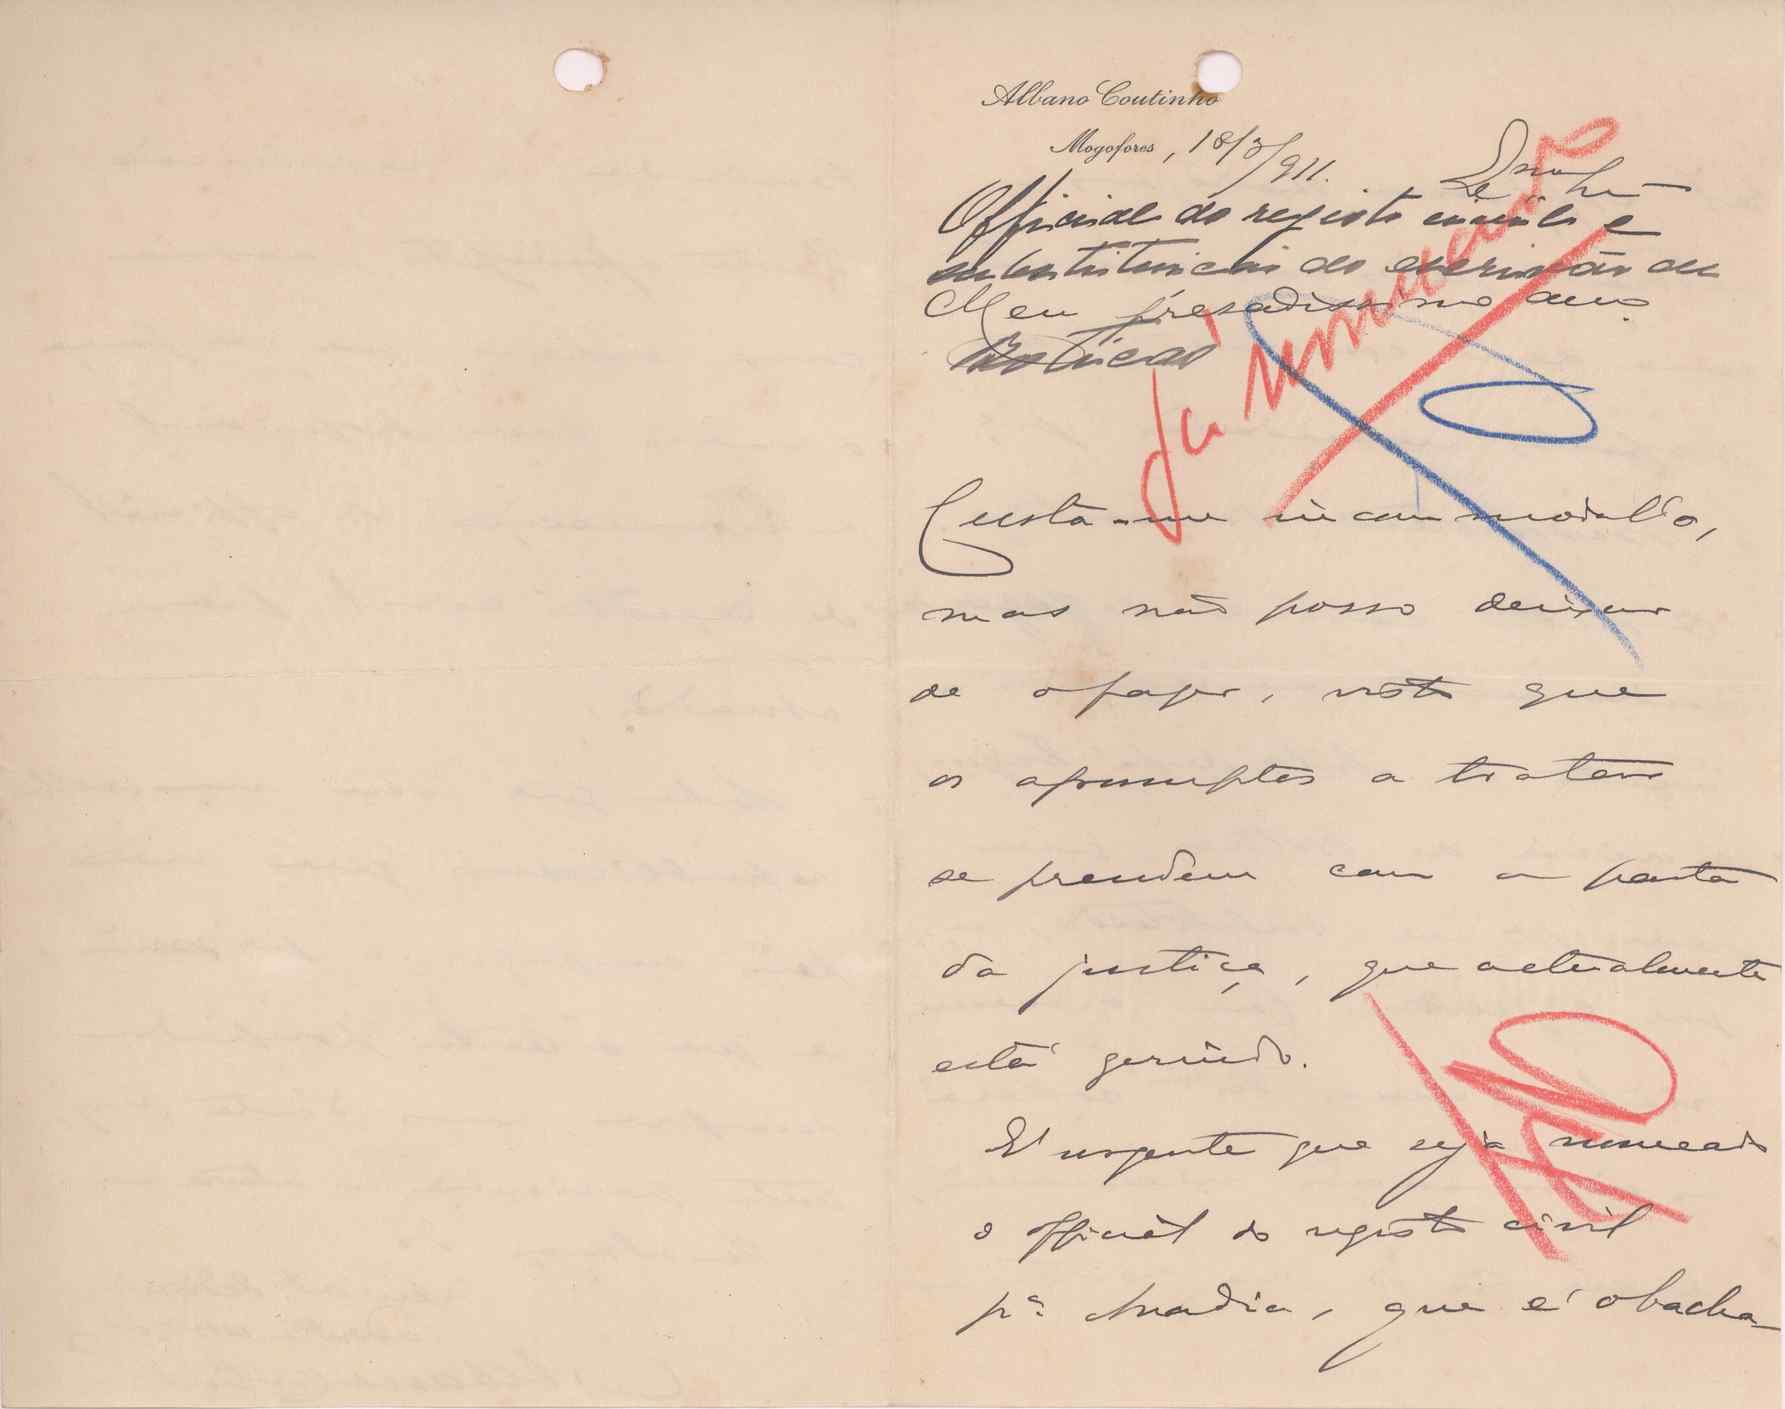 Albano Coutinho
Mogofores, 18/3/911.
Official do registo civil e
substituicão do escrivão de
Meu presadissimo amo.
Noticias
já
Custa-me incommodal'o,
mas não posso deixar
de o fazer, visto que
os assumptos a tratar
se prendem com a pasta
da justiça, que actualmente
está gerindo.
É urgente que seja nomeado
o official do registo civil
pª Anadia, que é o bacha-